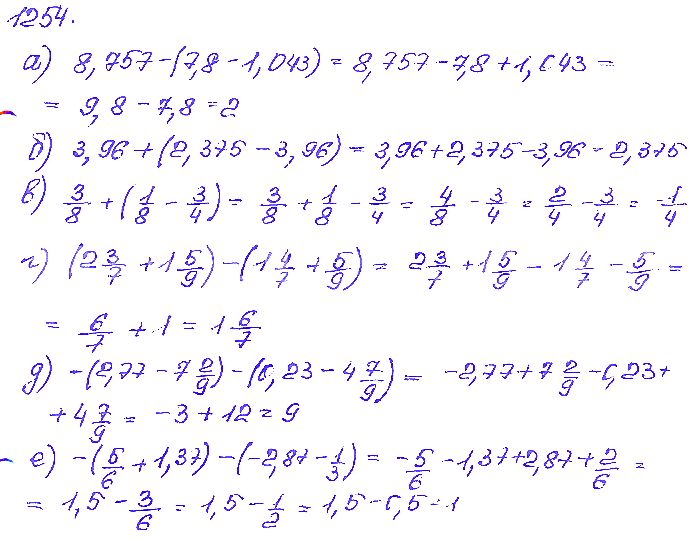 1254.
а) 8,757-(7,8-1,043) = 8,757-7,8+1,043 =
= 9,8-7,8=2
б) 3,96+(2,375-3,96) = 3,96+2,375-3,96=2,375
в) 3/8 + (1/8 - 3/4) = 3/8 + 1/8 - 3/4 = 4/8 - 3/4 = 2/4 - 3/4 = -1/4
г) (2 3/7 + 1 5/9) - (1 4/7 + 5/9) = 2 3/7 + 1 5/9 - 1 4/7 - 5/9 =
= 6/7 + 1 = 1 6/7
д) -(2,77 - 7 2/9) - (0,23 - 4 7/9) = -2,77 + 7 2/9 - 0,23 +
+ 4 7/9 = -3 + 12 = 9
е) -(5/6 + 1,37) - (-2,87 - 1/3) = -5/6 - 1,37 + 2,87 + 2/6 =
= 1,5 - 3/6 = 1,5 - 1/2 = 1,5 - 0,5 = 1